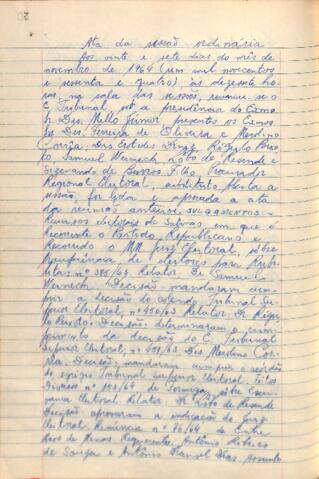 Ata da sessão ordinária
Aos vinte e sete dias do mês de
novembro de 1964 (um mil novecentos
e sessenta e quatro) às dezesete ho-
ras, na sala das sessões, reuniu-se o
E. Tribunal, sob a presidência do Exmo
Des. Mello Júnior presentes os Exmos
Srs. Des. Ferreira de Oliveira e Merolino
Corrêa, Drs.
Samuel Werneck, Lôbo de Resende e
de Barros Filho, Procurador
Regional Eleitoral, substituto. Aberta a
sessão, foi lida e aprovada a ata
da reunião anterior. JULGAMENTOS:-
Recursos eleitorais de em que é
Recorrente o Partido Republicano e
Recorrido o MM Juiz Eleitoral, sôbre
transferência de eleitores para
nº Relator. Dr. Samuel
Werneck. Decisão: mandaram cum-
prir a decisão do Colendo Tribunal Su-
perior Eleitoral, nº 450/63 Relator: Dr.
Decisão: determinaram o cum-
primento da decisão do C. Tribunal
Superior Eleitoral, nº Des. Merolino Cor-
rêa. Decisão: mandaram cumprir o acórdão
do egrégio Tribunal Superior Eleitoral. Feitos
Diversos nº 153/64 de Formiga, sôbre
Eleitoral. Relator. Dr. Lôbo de Resende
Decisão, aprovaram a indicação do Juiz
Eleitoral. Renúncia nº 76/64 de Entre
Rios de Minas. Requerente: Antônio Ribeiro
de Souza e Antônio Dias. Assunto